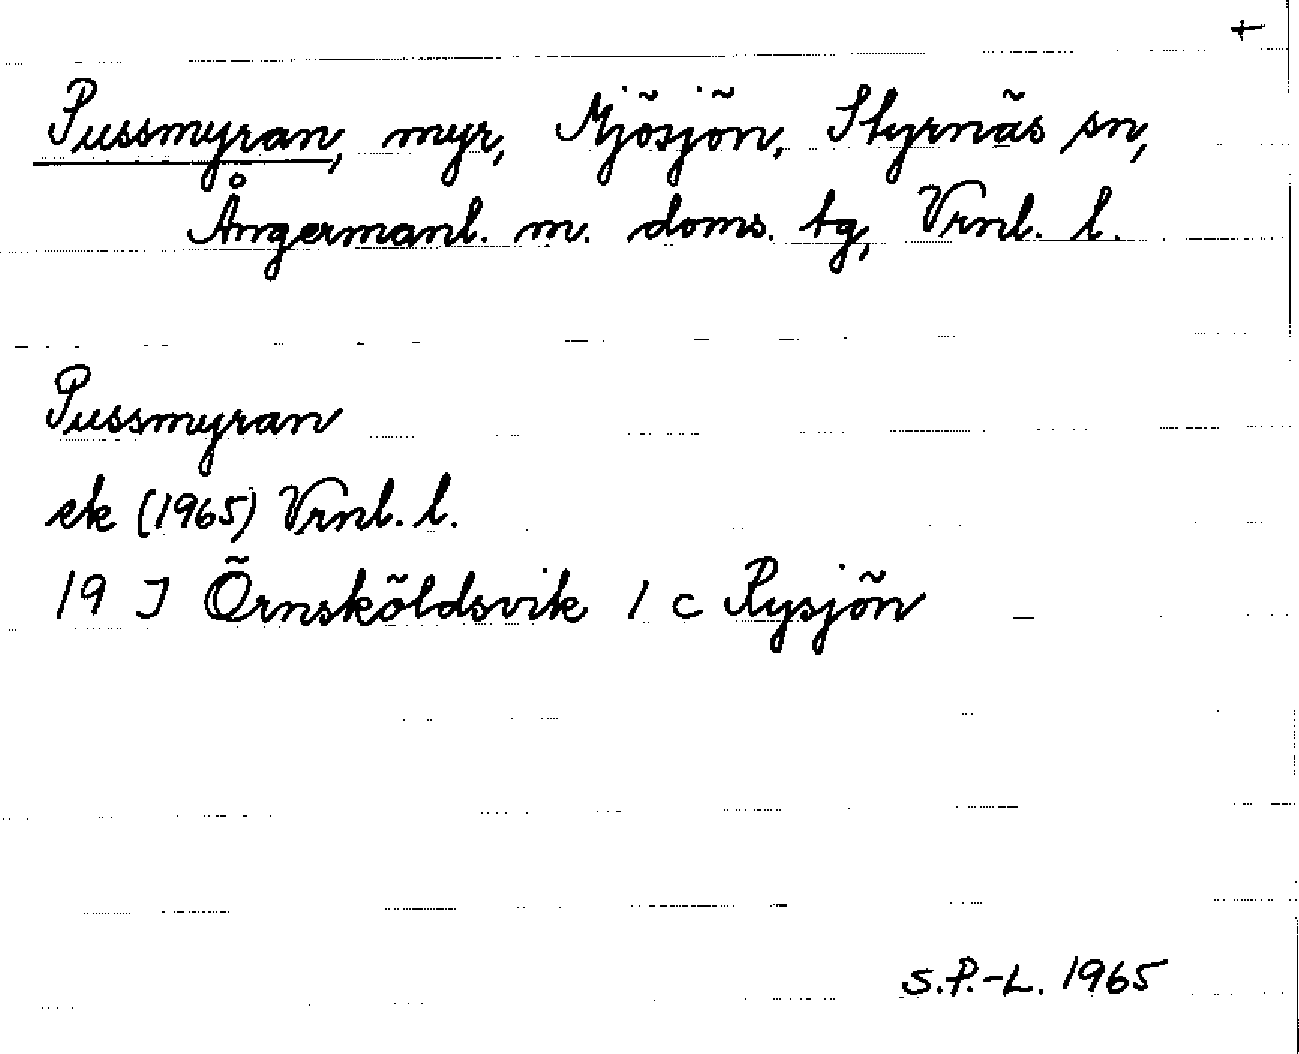 +
Pussmyran, myr, Mjösjön, Styrnäs sn,
Ångermanl. m. doms. tg, Vrnl. l.
Pussmyran
ek (1965) Vrnl. l.
19 J Örnsköldsvik 1 c Rysjön
S.P.-L. 1965